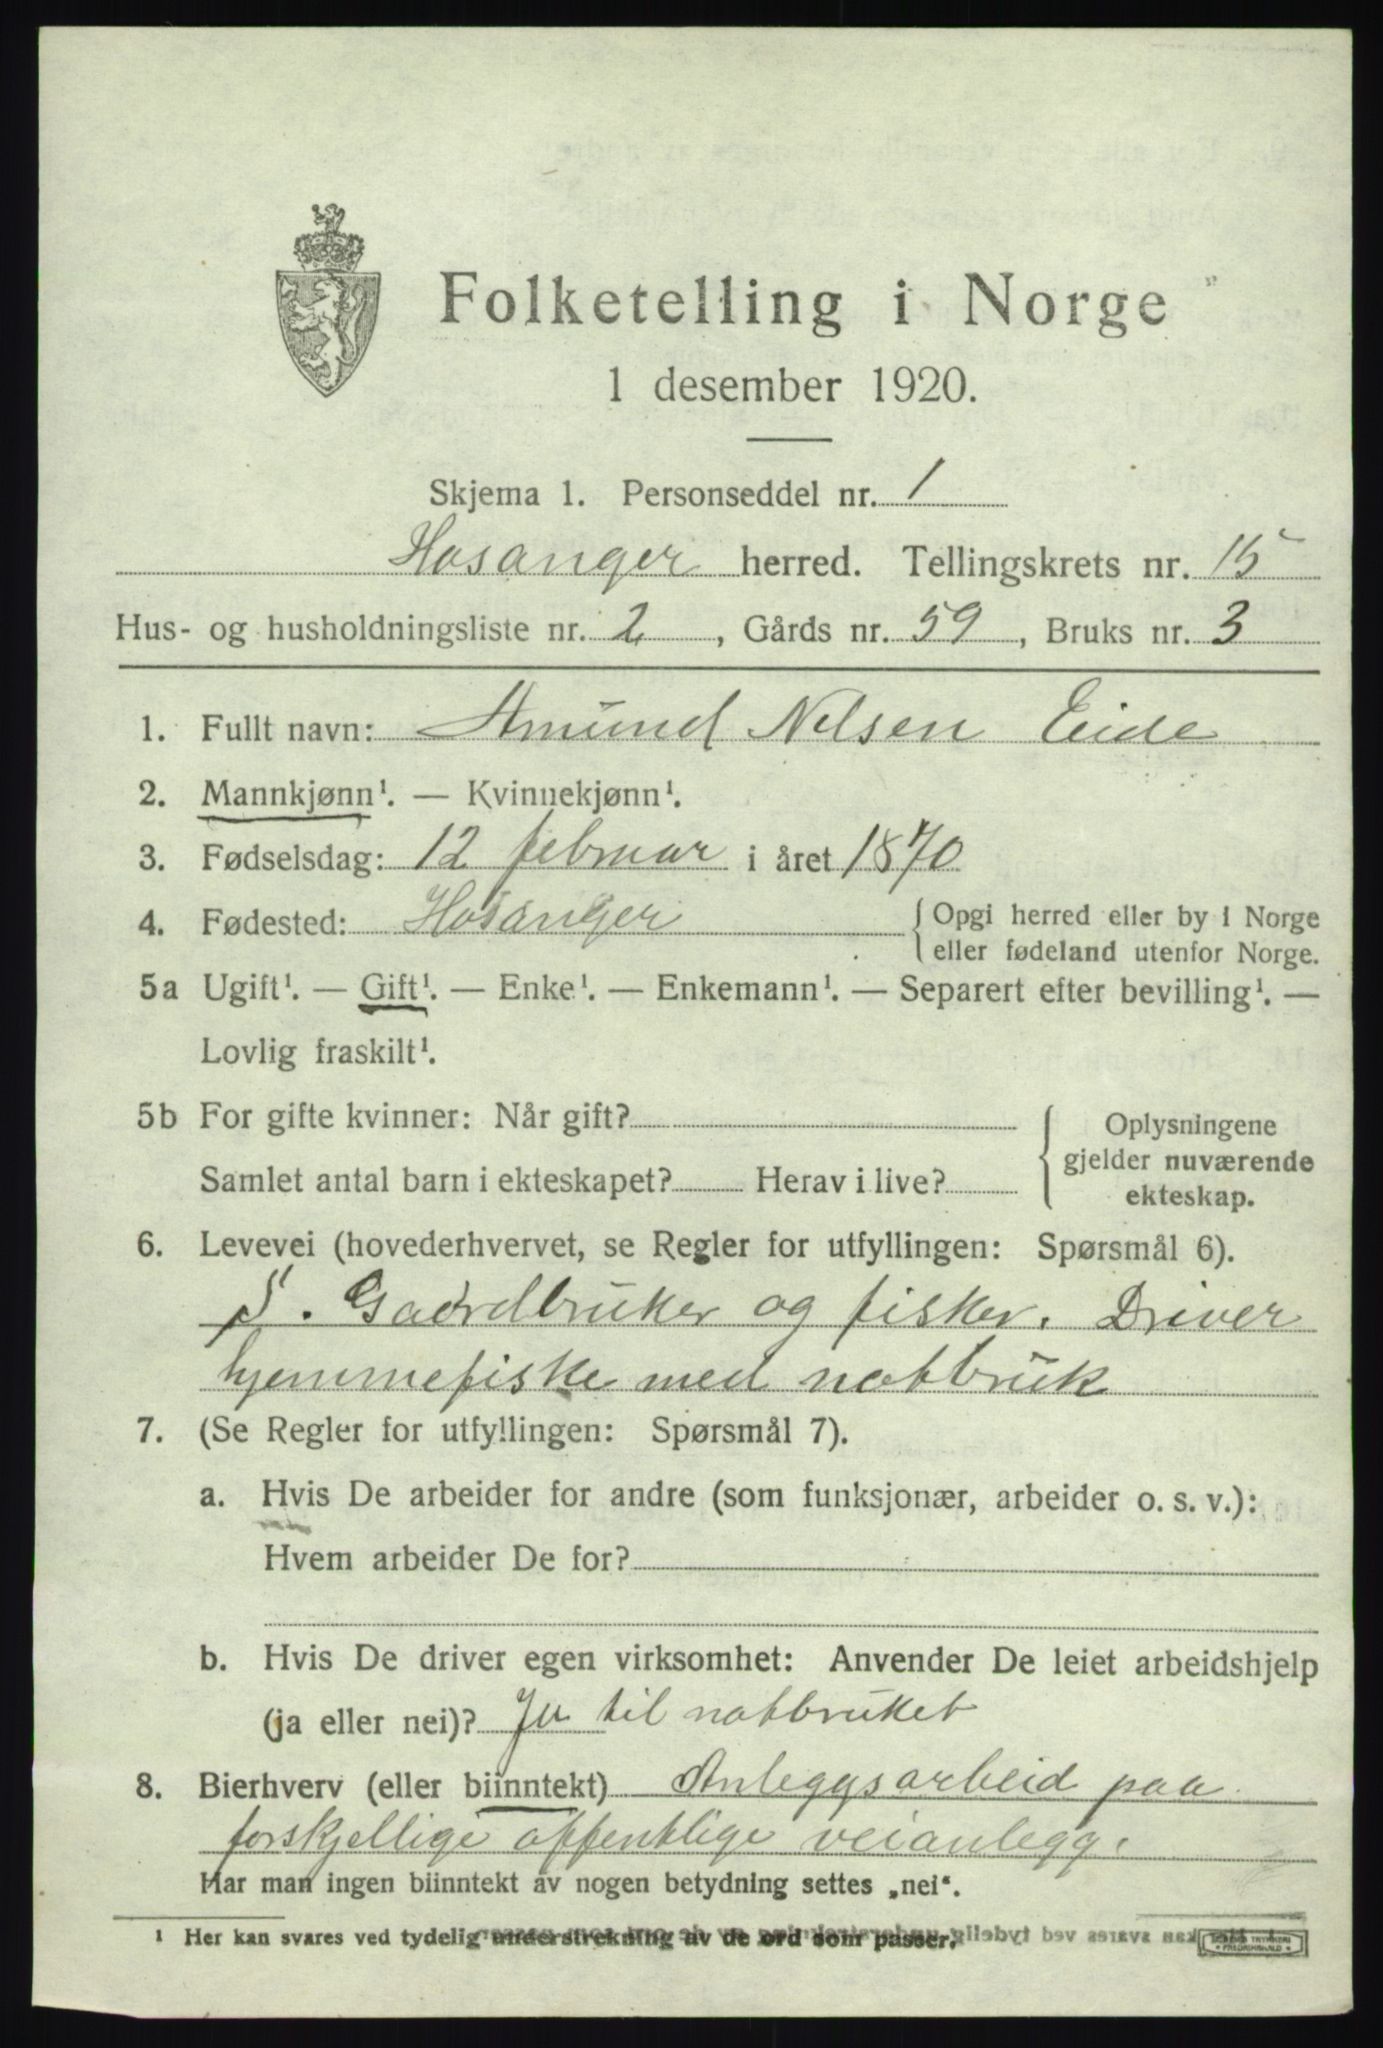 Folketelling i Norge
1 desember 1920.
Skjema 1. Personseddel nr. 1
Hosanger herred. Tellingskrets nr. 15
Hus- og husholdningsliste nr. 2, Gårds nr. 59, Bruks nr. 3
1. Fullt navn: Amund Nelsen Eide
2. Mannkjønn¹. — Kvinnekjønn¹.
3. Fødselsdag: 12 februar i året 1870
4. Fødested: Hosanger { Opgi herred eller by i Norge
eller fødeland utenfor Norge.
5a Ugift¹. — Gift¹. — Enke¹. — Enkemann¹. — Separert efter bevilling¹. —
Lovlig fraskilt¹.
5b For gifte kvinner: Når gift? { Oplysningene
gjelder nuværende
Samlet antal barn i ekteskapet? Herav i live?
ekteskap.
6. Levevei (hovederhvervet, se Regler for utfyllingen: Spørsmål 6).
S. Gaardbruker og fisker. Driver
hjemmefiske med notbruk
7. (Se Regler for utfyllingen: Spørsmål 7).
a. Hvis De arbeider for andre (som funksjonær, arbeider o. s. v.):
Hvem arbeider De for?
b. Hvis De driver egen virksomhet: Anvender De leiet arbeidshjelp
(ja eller nei)? Ja til notbruket
8. Bierhverv (eller biinntekt) Anleggsarbeid paa
forskjellige offentlige veianlegg.
Har man ingen biinntekt av nogen betydning settes „nei“.
¹ Her kan svares ved tydelig understrekning av de ord som passer.